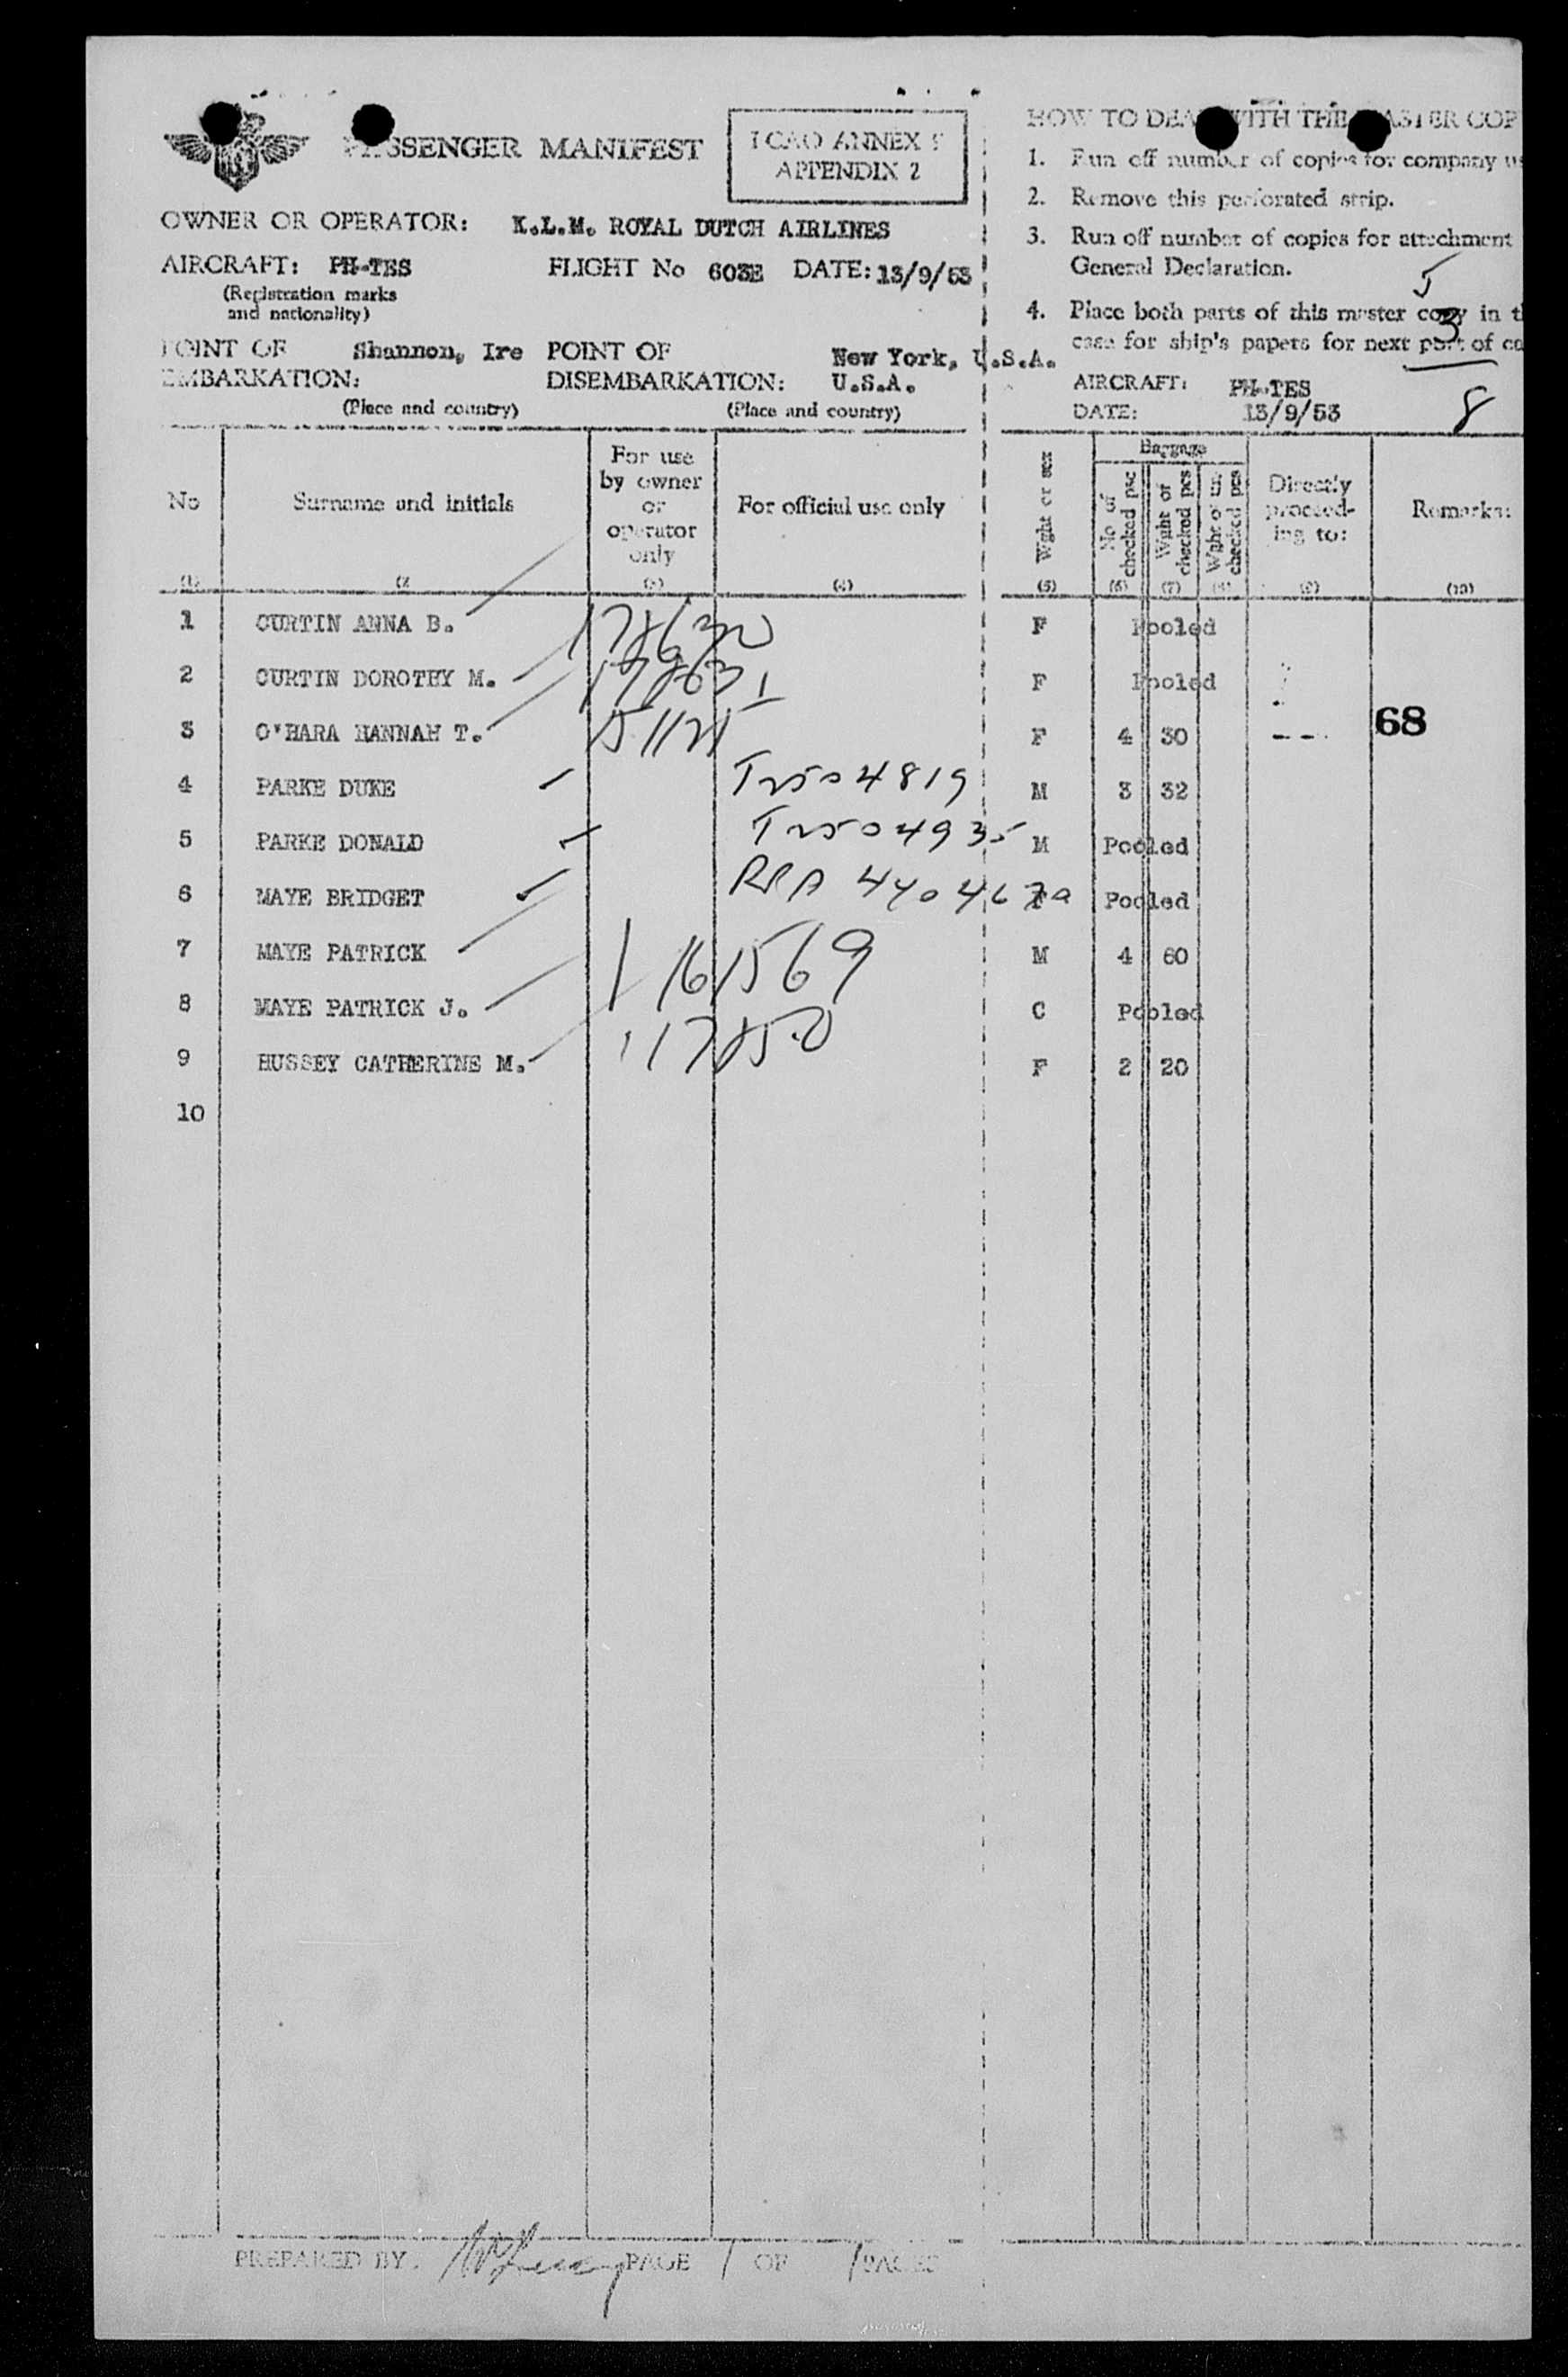 PASSENGER MANIFEST
ICAO ANNEX 9
APPENDIX 2
OWNER OR OPERATOR: K.L.M. ROYAL DUTCH AIRLINES
AIRCRAFT: PH-TES FLIGHT No 603E DATE: 13/9/53
(Registration marks
and nationality)
POINT OF Shannon, Ire POINT OF New York, U.S.A.
EMBARKATION: DISEMBARKATION: U.S.A.
(Place and country) (Place and country)
HOW TO DEAL WITH THE MASTER COP
1. Run off number of copies for company us
2. Remove this perforated strip.
3. Run off number of copies for attachment
General Declaration.
5
4. Place both parts of this master copy in t
3
case for ship's papers for next port of ca
AIRCRAFT: PH-TES
DATE: 13/9/53
8
No Surname and initials For use by owner or operator only For official use only Wght or sex Baggage No of checked psc Wght of checked pcs Wght of checked pcs Directly proceed-ing to: Remarks:
(1) (2 (3) (4) (5) (6) (7) (8) (9) (10)
1 CURTIN ANNA B. F Pooled
2 CURTIN DOROTHY M. F Pooled
3 O'HARA HANNAH T. 151121 F 4 30 68
4 PARKE DUKE 504819 M 3 32
5 PARKE DONALD 504935 M Pooled
6 MAYE BRIDGET Pooled
7 MAYE PATRICK 1161569 M 4 60
8 MAYE PATRICK J. C Pooled
9 HUSSEY CATHERINE M. F 2 20
10
PREPARED BY. PAGE 1 OF 1 PAGES